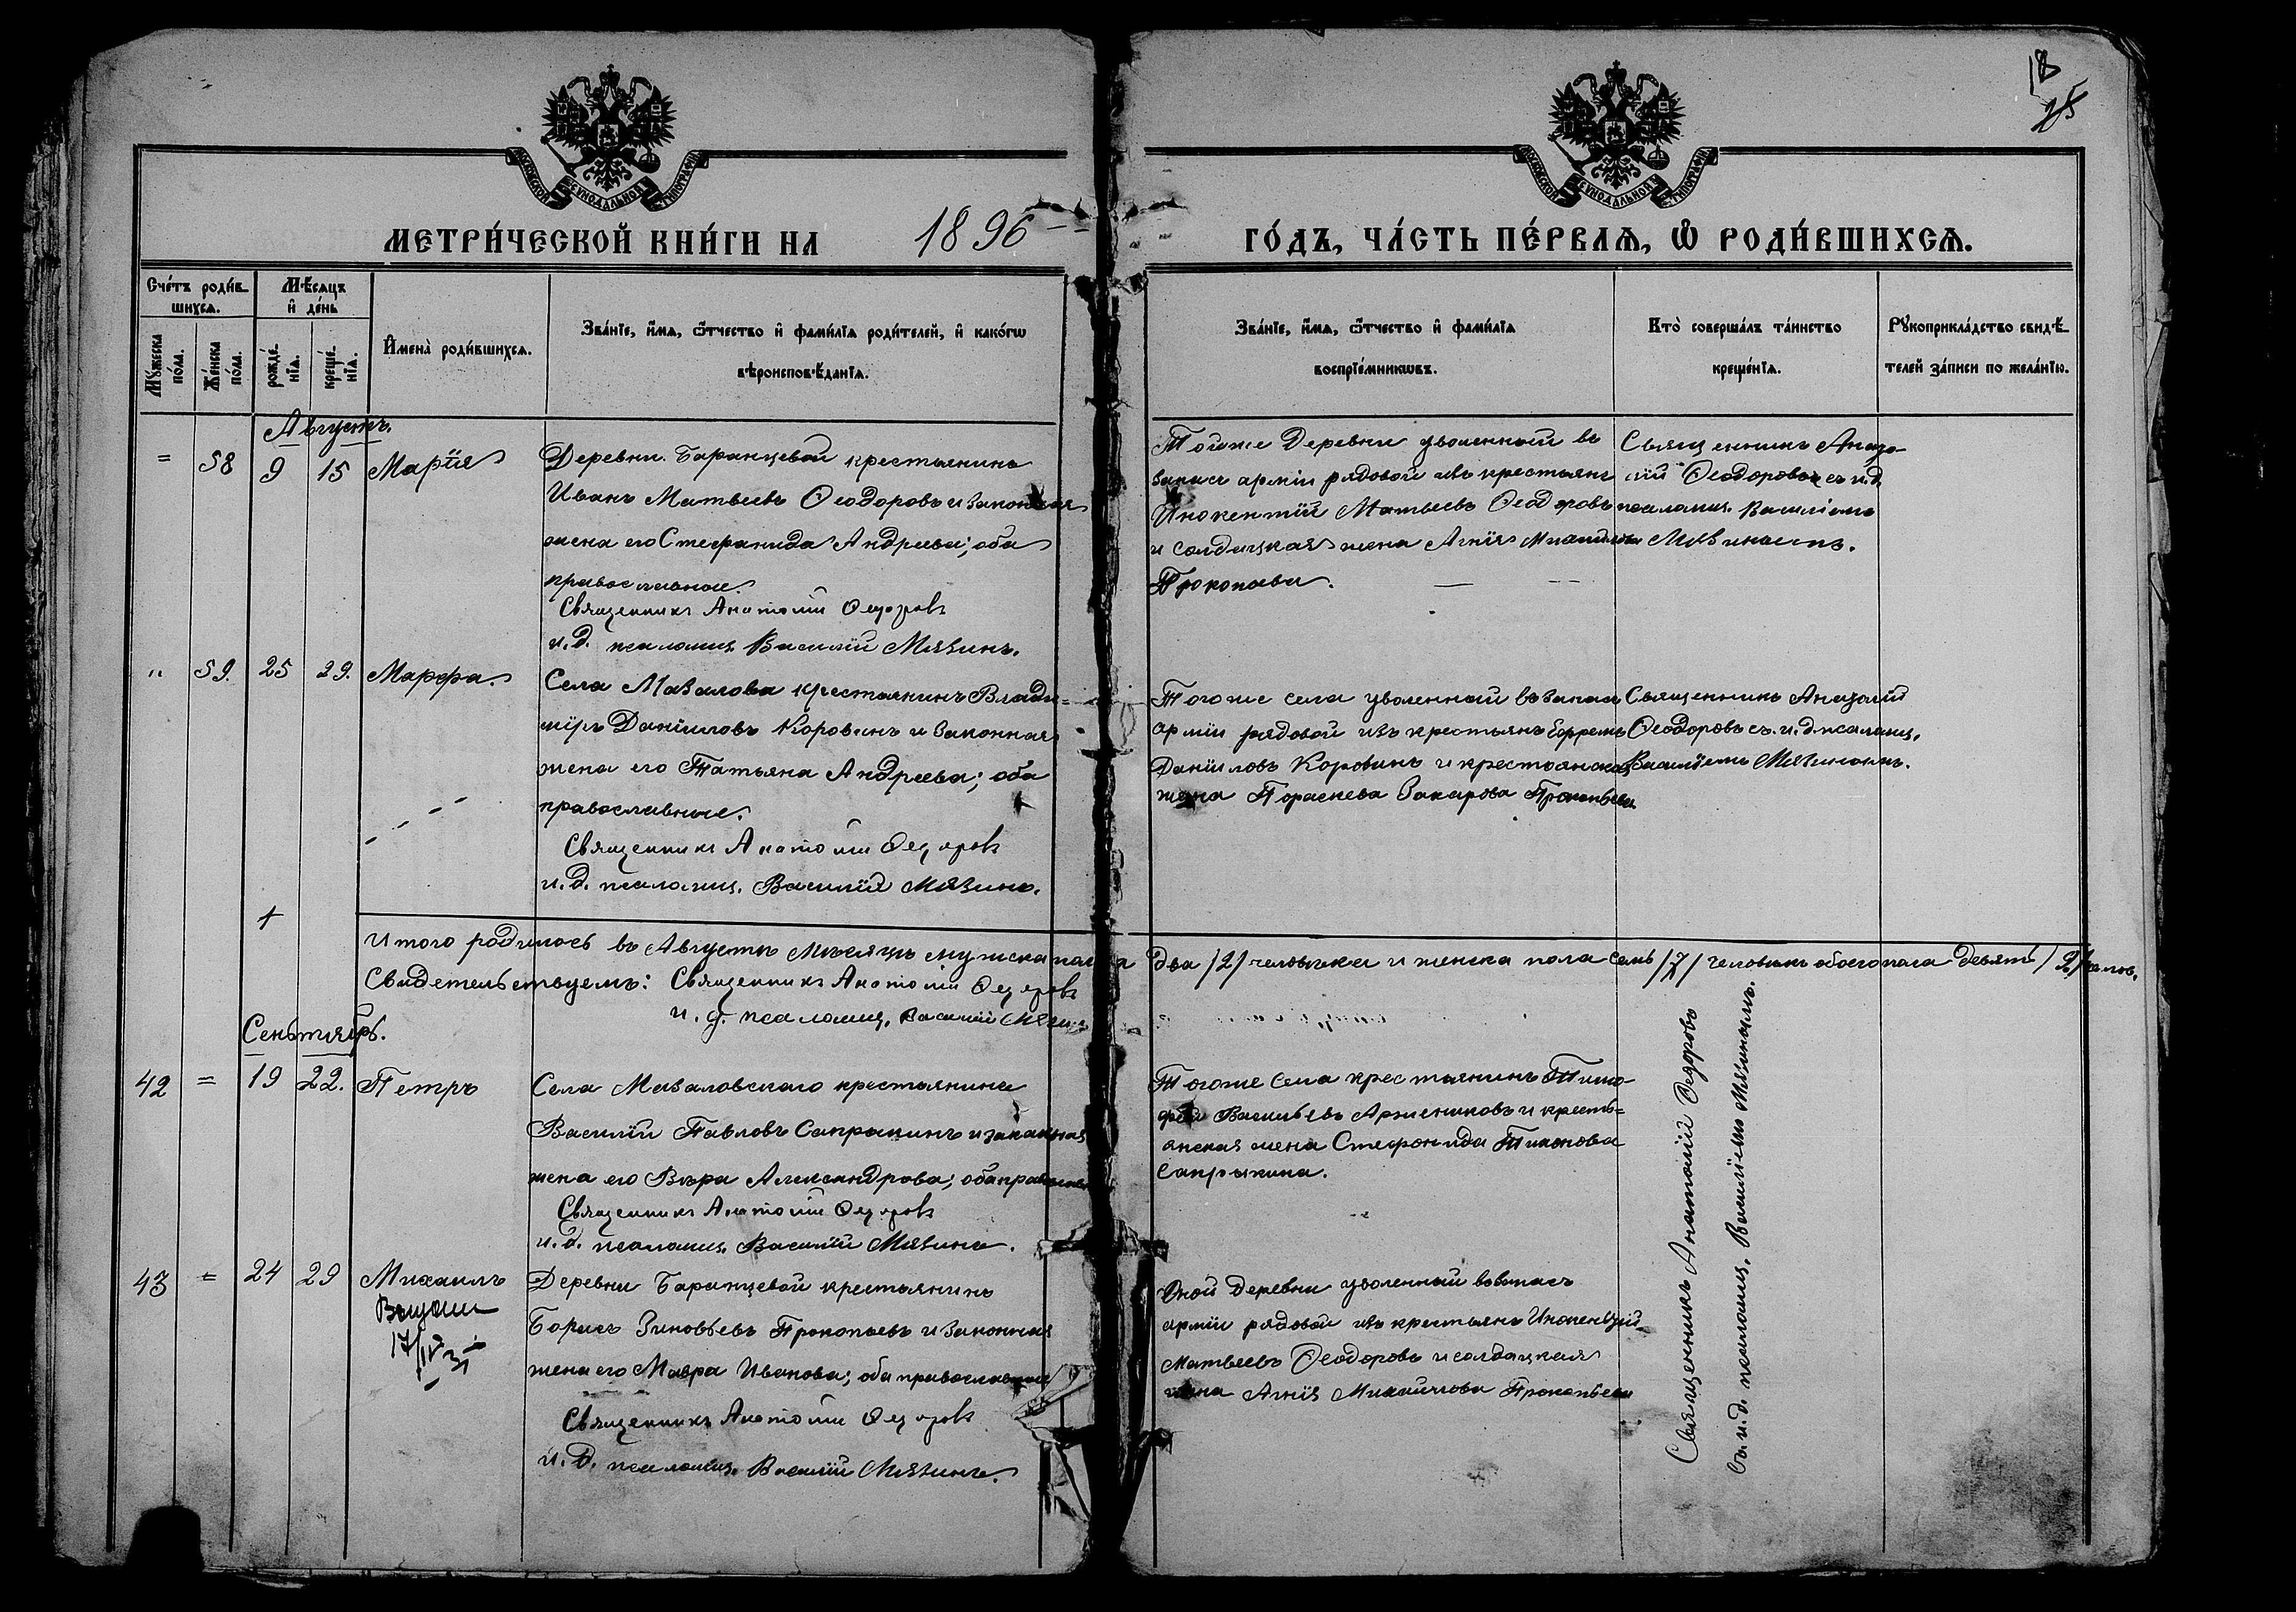 18
25
МОСКОВСКОЙ СѴНОДАЛЬНОЙ ТИПОГРАФІИ
МОСКОВСКОЙ СѴНОДАЛЬНОЙ ТИПОГРАФІИ
МЕТРИ́ЧЕСКОЙ КНИ́ГИ НА 1896 ГО́ДЪ, ЧА́СТЬ ПЕ́РВАѦ, Ѡ҆ РОДИ́ВШИХСѦ.
Сче́тъ роди́в-
шихсѧ.
Мꙋ́жеска
по́ла.
Же́нска
по́ла.
Мѣ́сѧцъ
и҆ де́нь
рожде́-
нїѧ.
креще́-
нїѧ.
И҆мена̀ роди́вшихсѧ.
Зва́нїе, и҆́мѧ, ѻ҆́тчество и҆ фами́лїѧ роди́телей, и҆ како́гѡ
вѣроисповѣ́данїѧ.
Зва́нїе, и҆́мѧ, ѻ҆́тчество и҆ фами́лїѧ
воспрїе́мникѡвъ.
Кто̀ соверша́лъ та́инство
креще́нїѧ.
Рꙋкоприкла́дство свидѣ́-
телей за́писи по жела́нїю.
Августъ.
= 58 9 15 Марія
Деревни Баранцевой крестьянинъ
Иванъ Матвеевъ Ѳеодоровъ и законная
жена его Стефанида Андреева; оба
православные.
Священникъ Анатолій Ѳедоровъ
и.д. псаломщ. Василій Мязинъ.
Тойже деревни уволенный въ
запасъ арміи рядовой изъ крестьянъ
Инокентій Матвеевъ Ѳеодоровъ
и солдатская жена Агнія Михайлова
Прокопьева.
Священникъ Анато-
лій Ѳеодоровъ съ и.д.
псаломщ. Василіемъ
Мязинымъ.
" 59. 25 29. Марфа.
Села Мазалова крестьянинъ Влади-
міръ Даніиловъ Коровинъ и законная
жена его Татьяна Андреева; оба
православные.
Священникъ Анатолій Ѳедоровъ
и.д. псаломщ. Василій Мязинъ.
Тогоже села уволенный въ запасъ
арміи рядовой изъ крестьянъ Ефремъ
Даніиловъ Коровинъ и крестьянская
жена Параскева Захарова Прокопьева
Священникъ Анатолій
Ѳеодоровъ съ и.д. псаломщ.
Василіемъ Мязинымъ.
Итого родилось въ Августѣ мѣсяцѣ мужска пола два /2/ человѣка и женска пола семь /7/ человѣкъ обоего пола девять /9/ челов.
Свидетельствуемъ: Священникъ Анатолій Ѳедоровъ
и.д. псаломщ. Василій Мязинъ
Сентябрь.
42 = 19 22. Петръ
Села Мазаловскаго крестьянина
Василій Павловъ Сапрыкинъ и законная
жена его Вѣра Александрова; оба православные
Священникъ Анатолій Ѳедоровъ
и.д. псаломщ. Василій Мязинъ.
Тогоже села крестьянинъ Тимо-
фей Васильевъ Аржениковъ и кресть-
янская жена Стефонида Тихонова
Сапрыкина.
43 = 24 29 Михаилъ
17/IV 31
Деревни Баранцевой крестьянинъ
Борисъ Зиновьевъ Прокопьевъ и законная
жена его Мавра Иванова; оба православные
Священникъ Анатолій Ѳедоровъ
и.д. псаломщ. Василій Мязинъ.
Оной деревни уволенный въ запасъ
арміи рядовой изъ крестьянъ Инокентій
Матвеевъ Ѳеодоровъ и солдатская
жена Агнія Михайлова Прокопьева
Священникъ Анатолій Ѳедоровъ
съ и.д. псаломщ. Василіемъ Мязинымъ.